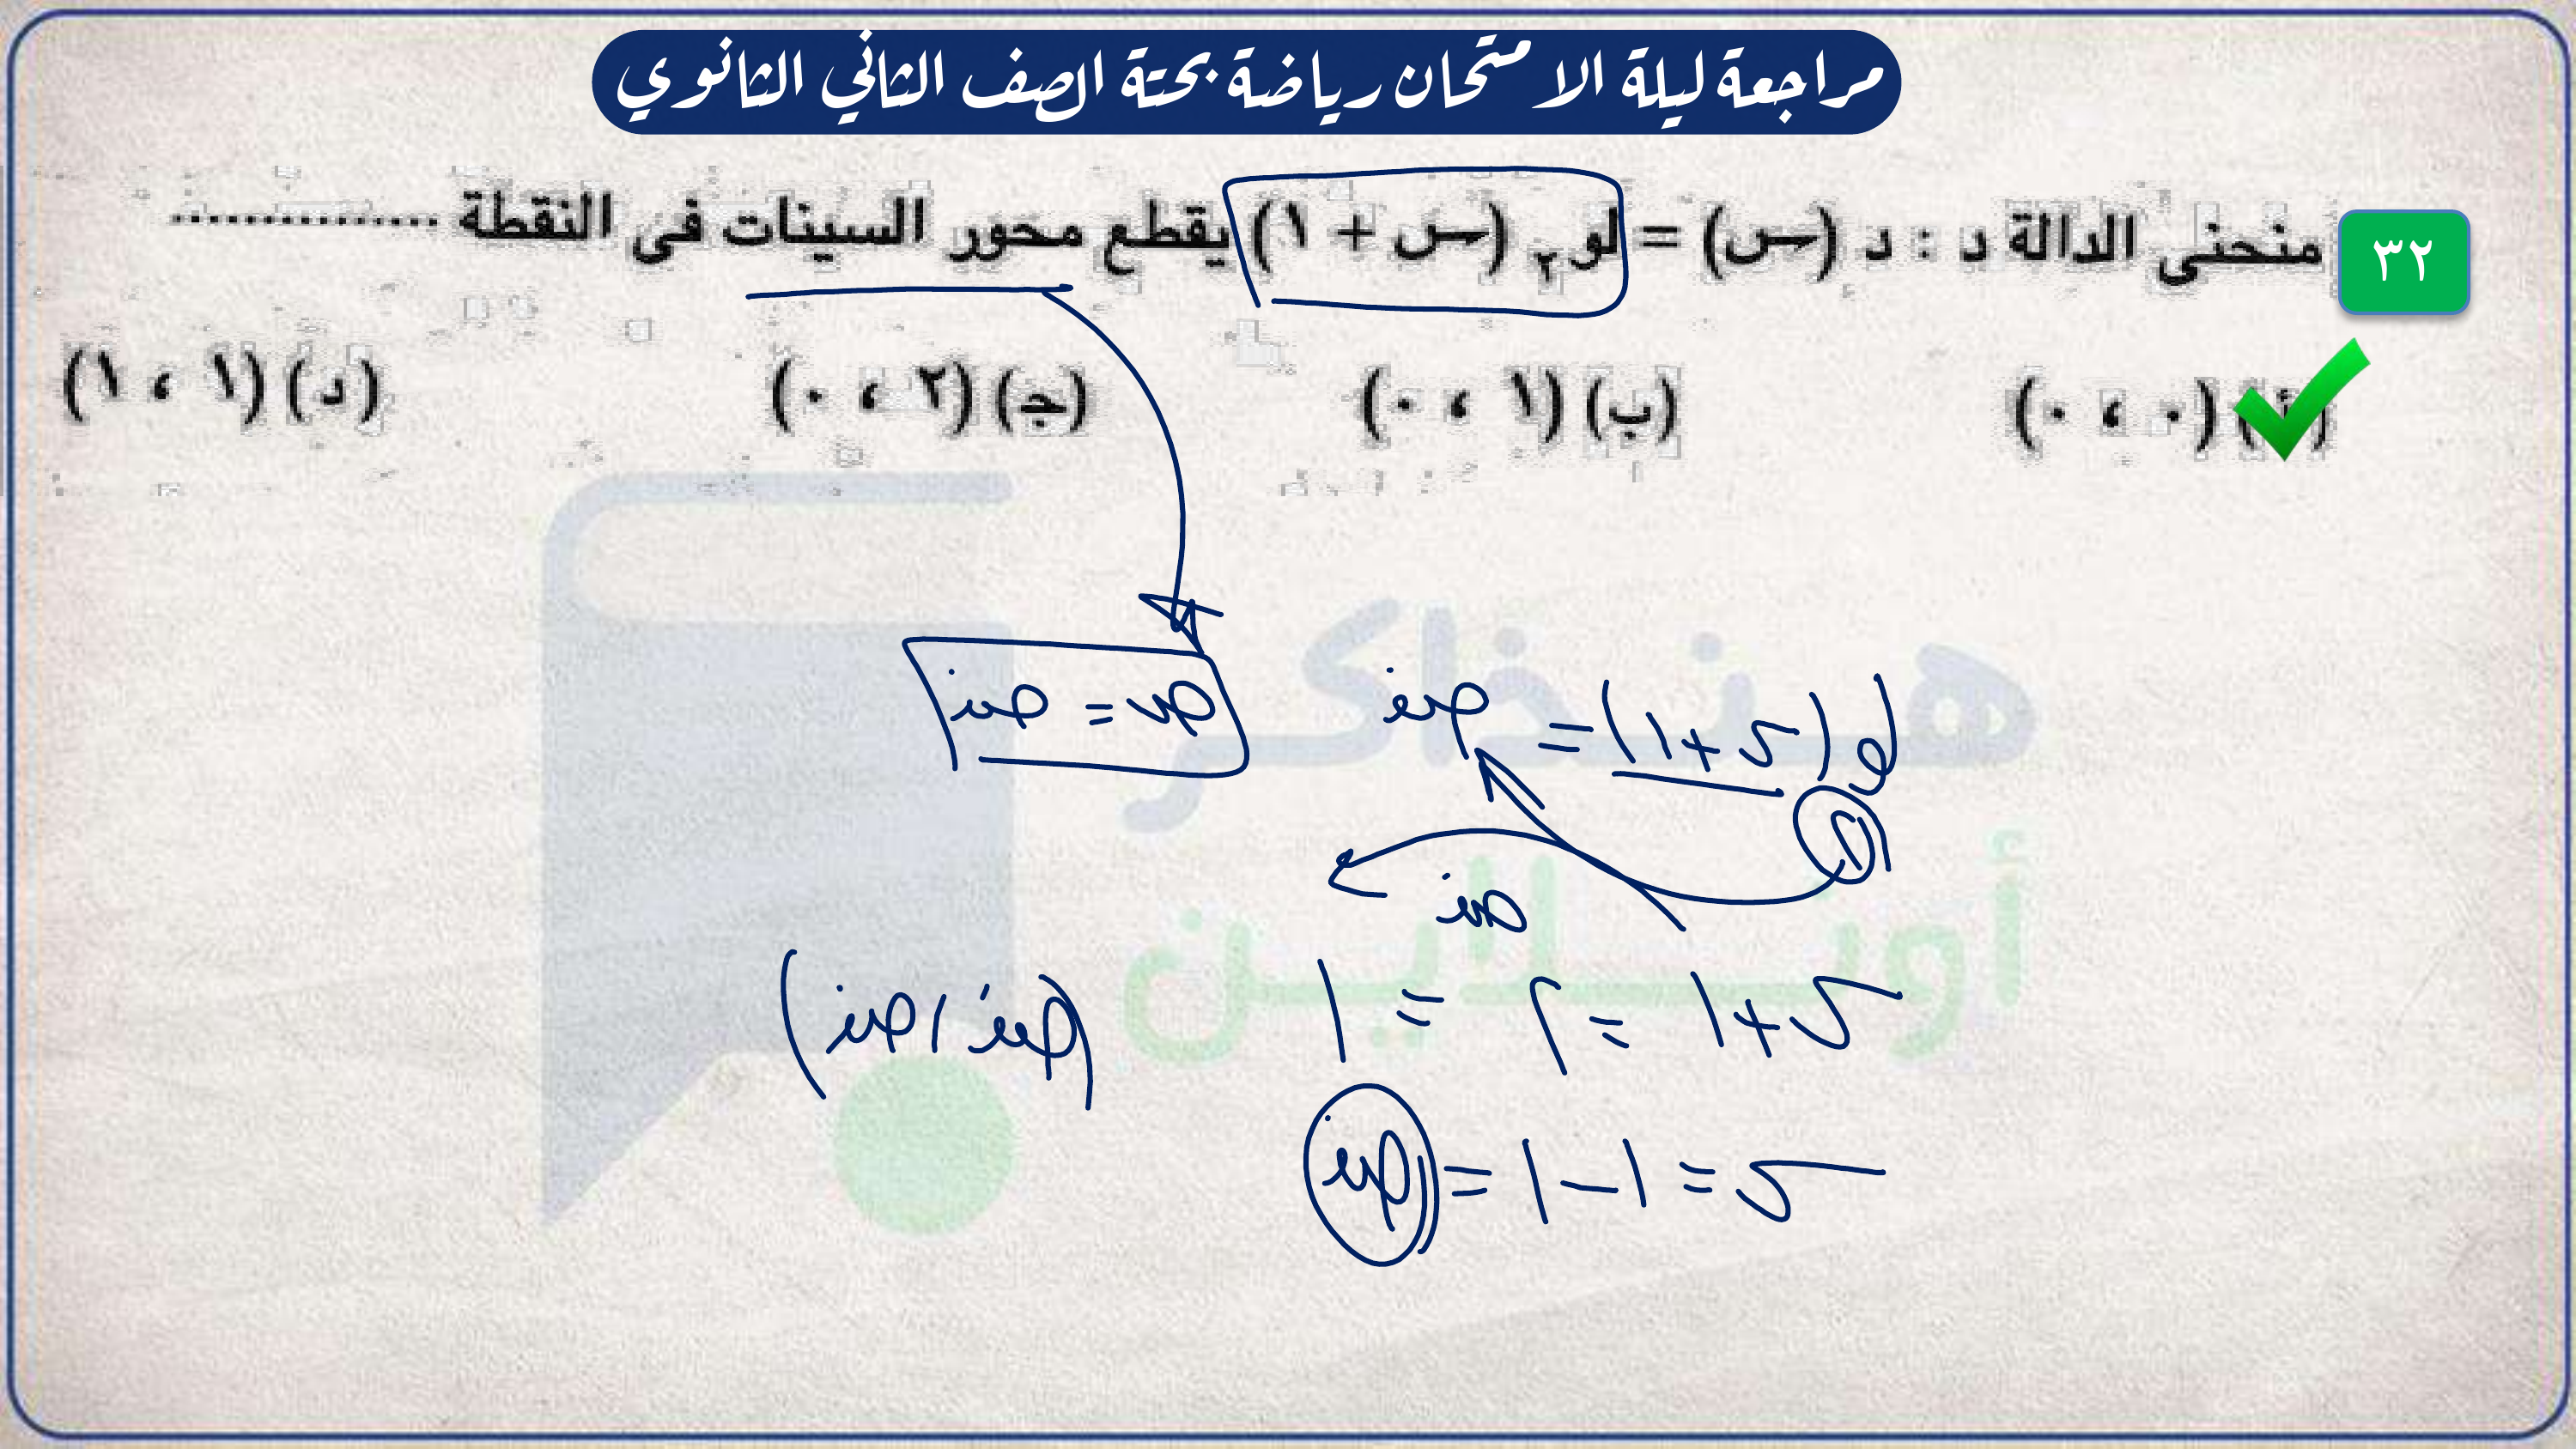 مراجعة ليلة الامتحان رياضة بحتة الصف الثاني الثانوي
٣٢ منحنى الدالة د : د (س) = لو٢ (س + ١) يقطع محور السينات فى النقطة ..............
(أ) (٠ ، ٠) (ب) (١ ، ٠) (ج) (٢ ، ٠) (د) (١ ، ١)
لو٢ (س+١) = صفر
ص = صفر
صفر
س+١ = ٢ = ١
(صفر ، صفر)
س = ١ - ١ = صفر
هنذاكر
أونلاين